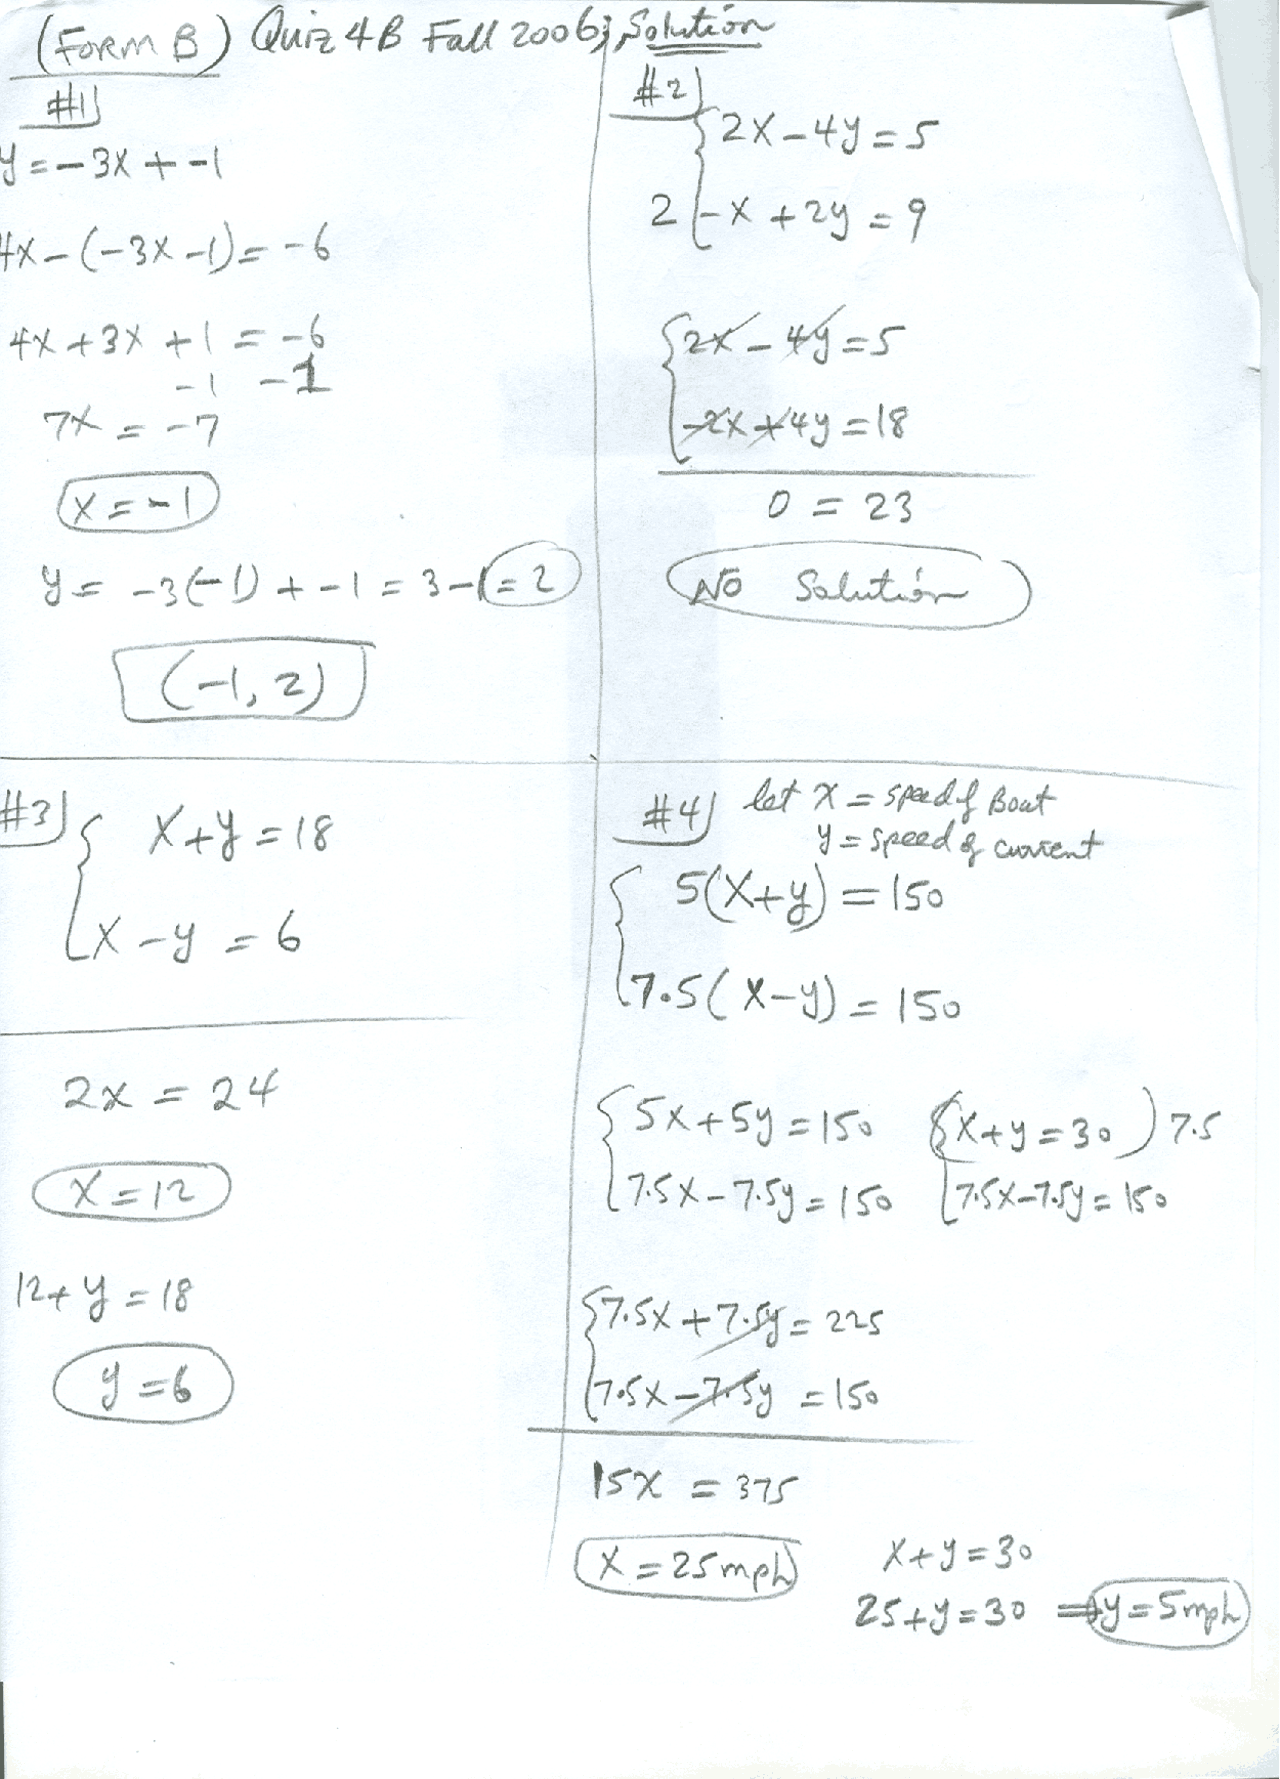 (Form B) Quiz 4B Fall 2006; Solution
#1)
y = -3x + -1
4x - (-3x - 1) = -6
4x + 3x + 1 = -6
-1 -1
7x = -7
x = -1
y = -3(-1) + -1 = 3 - 1 = 2
(-1, 2)
#2)
2x - 4y = 5
2 -x + 2y = 9
2x - 4y = 5
-2x + 4y = 18
0 = 23
No Solution
#3)
x + y = 18
x - y = 6
2x = 24
x = 12
12 + y = 18
y = 6
#4) let x = speed of Boat
y = speed of current
5(x + y) = 150
7.5(x - y) = 150
5x + 5y = 150 (x + y = 30) 7.5
7.5x - 7.5y = 150 7.5x - 7.5y = 150
7.5x + 7.5y = 225
7.5x - 7.5y = 150
15x = 375
x = 25 mph
x + y = 30
25 + y = 30 ⇒ y = 5 mph